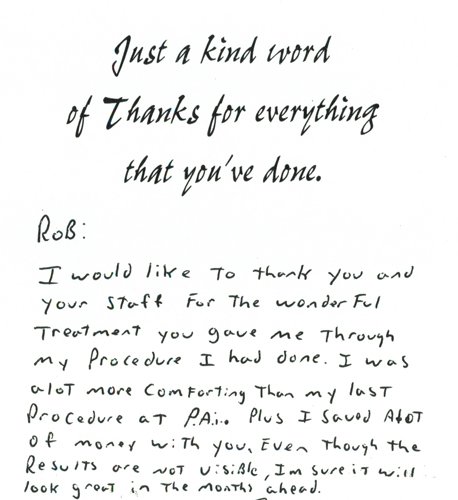 Just a kind word
of Thanks for everything
that you've done.
Rob:
I would like to thank you and
your staff for the wonderful
Treatment you gave me through
my procedure I had done. I was
alot more comforting than my last
procedure at P.A.I.. Plus I saved Alot
of money with you, Even though the
Results are not visible, Im sure it will
look great in the months ahead.